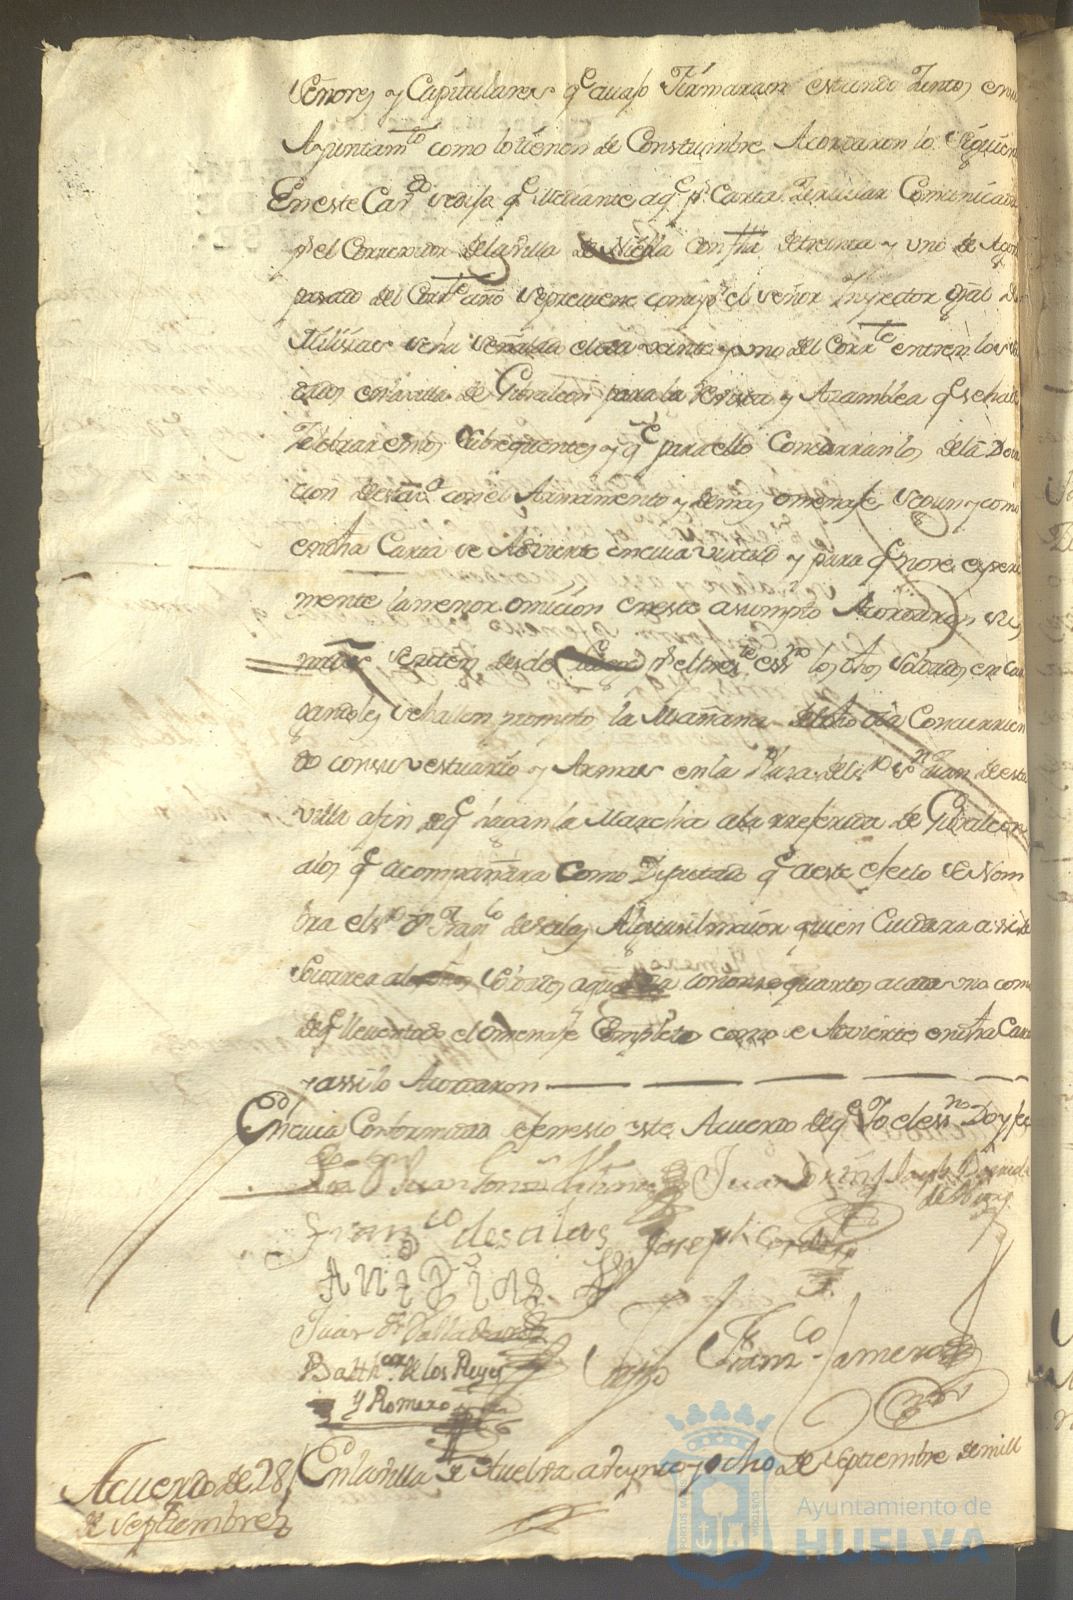 Señores y Capitulares q avajo firmaran estando Juntos en su
Ayuntamto como lo tienen de Constumbre Acordaron lo siguien
En este Cavdo se dijo q Mediante aq pr Carta Zircular Comunicada
pr el Correxidor de la villa de Niebla con fha de treinta y uno de Agos
pasado del Corrte año se previene como pr el señor Inspector Gral de
Milisias se ha señalado el dia veinte y uno del Corrte entren los sol
dados en la villa de Gibraleon para la Revista y Azamblea q se ha de
Zelebrar en los subsequentes y q para ello Concurran los de la Dota
cion de esta va con el Armamento y demas omenaje segun y como
en dha Carta se Advierte en cuia virtud y para q no se experi
mente la menor omicion en este asumpto Acordaron sus
mrdes se siten desde pr el preste essno los dhos soldados encar
gandoles se hallen promto la Mañana del dho dia Concurrien
do con su vestuario y Armas en la Plaza del Sr Sn Juan de esta
villa a fin de q hagan la Marcha a la rreferida de Gibraleon
a los q acompañara Como Diputado q a este efecto se Nom
bra el Sr Dn Franco de Salas Alguasil maior quien Cuidara assi de
Socorrer a los soldados con onse quartos a cada uno como
de q lleven todo el omenaje Completo como se Advierte en dha Carta
y assi lo Acordaron
En cuia Conformidad se fenesio este Acuerdo de q Yo el essno Doy fee
Juan Joseph
Franco de Salas Joseph Cordero
Juan Valladares
Balthar de los Reyes Franco Jamero
y Romero
Acuerdo de 28 En la villa de Huelva a veynte y ocho de septiembre de mill
de septiembre
Ayuntamiento de
HUELVA